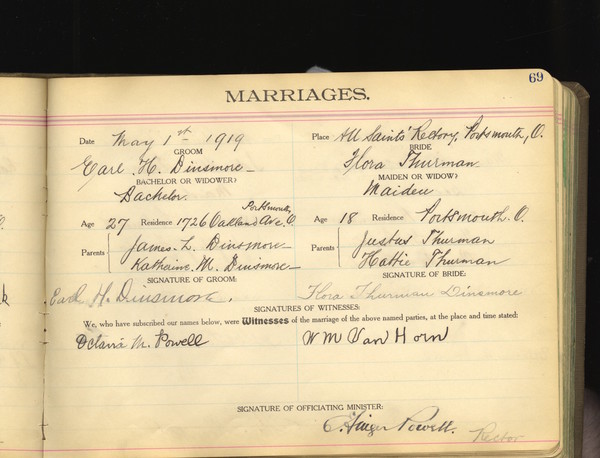 69
MARRIAGES.
Date May 1st 1919 Place All Saints' Rectory, Portsmouth, O.
GROOM BRIDE
Earl H. Dinsmore Flora Thurman
BACHELOR OR WIDOWER) MAIDEN OR WIDOW)
Bachelor. Maiden
Portsmouth
Age 27 Residence 1726 Oakland Ave. O Age 18 Residence Portsmouth. O.
Parents James. L. Dinsmore Parents Justus Thurman
Katharine. M. Dinsmore Hattie Thurman
SIGNATURE OF GROOM: SIGNATURE OF BRIDE:
Earl H. Dinsmore. Flora Thurman Dinsmore
SIGNATURES OF WITNESSES:
We, who have subscribed our names below, were Witnesses of the marriage of the above named parties, at the place and time stated:
Octavia M. Powell W M Van Horn
SIGNATURE OF OFFICIATING MINISTER:
Powell. Rector